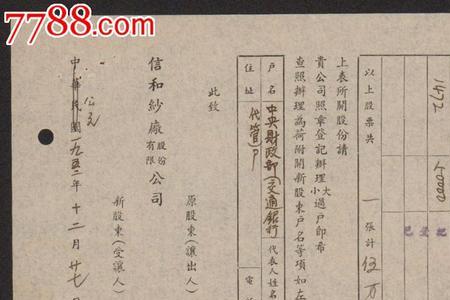 7788.com
1472
10000
以上股票共 一 張計 伍万
已登記
上表所開股份請
貴公司照章登記辦理大小過戶即希
查照辦理為荷附開新股東戶名等項如在
戶名 中央財政部(交通銀行 代表人姓名
住址 代管)戶 電
此致
信和紗廠股份有限公司
原股東(讓出人)
新股東(受讓人)
中華民國公元一九五二年十二月廿七日